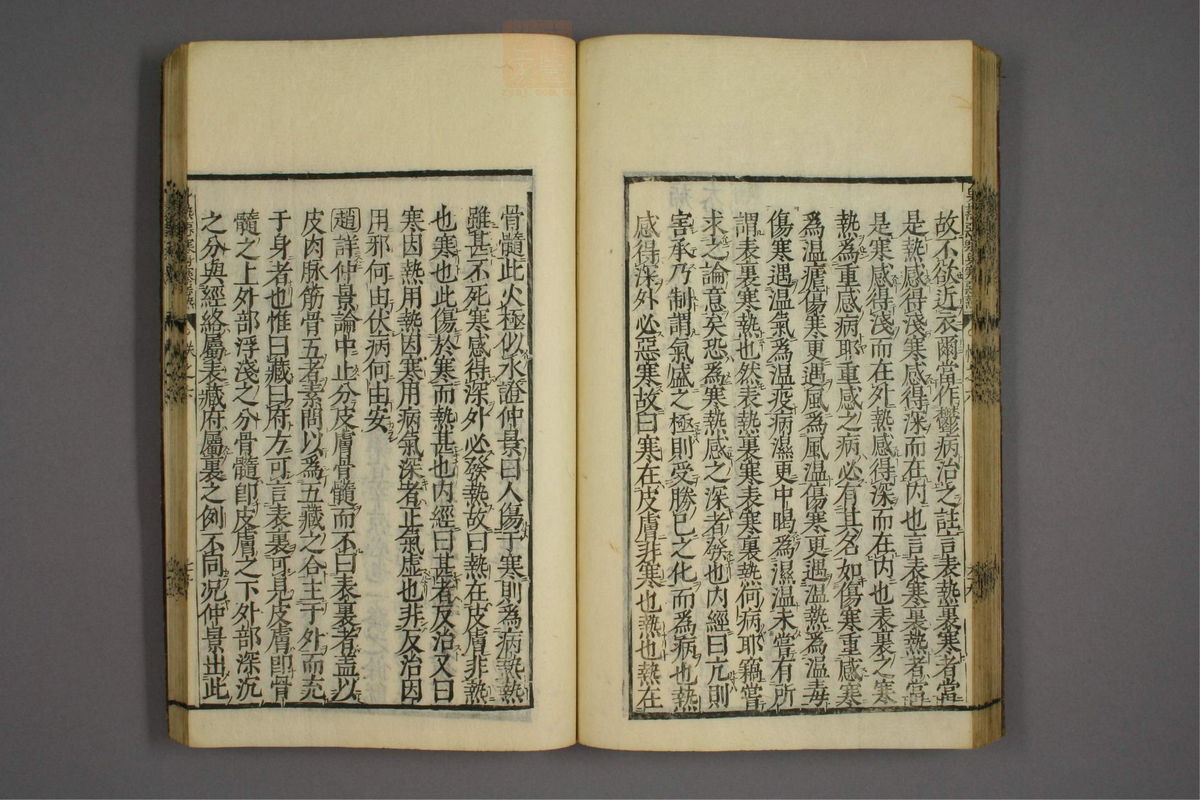 故不欲近衣爾當作鬱病治之註言表熱裏寒者當
是熱感得淺寒感得深而在内也言表寒裏熱者當
是寒感得淺而在外熱感得深而在内也表裏之寒
熱為重感病耶重感之病必有其名如傷寒重感寒
為温瘧傷寒更遇風為風温傷寒更遇温熱為温毒
傷寒遇温氣為温疫病濕更中暍為濕温未嘗有所
謂表裏寒熱也然表熱裏寒表寒裏熱何病耶竊當
求之論意矣恐為寒熱感之深者發也内經曰亢則
害承乃制謂氣盛之極則受勝已之化而為病也熱
感得深外必惡寒故曰寒在皮膚非寒也熱也熱在
骨髓此火極似水證仲景曰人傷于寒則為病熱熱
雖甚不死寒感得深外必發熱故曰熱在皮膚非熱
也寒也此傷於寒而熱甚也内經曰甚者反治又曰
寒因熱用熱因寒用病氣深者止氣虚也非反治因
用邪何由伏病何由安
趙詳仲景論中止分皮膚骨髓而不曰表裏者盖以
皮肉脉筋骨五者素問以為五藏之合主于外而充
于身者也惟曰藏曰府方可言表裏可見皮膚即骨
髓之上外部浮淺之分骨髓即皮膚之下外部深沉
之分與經絡屬表藏府屬裏之例不同况仲景出此